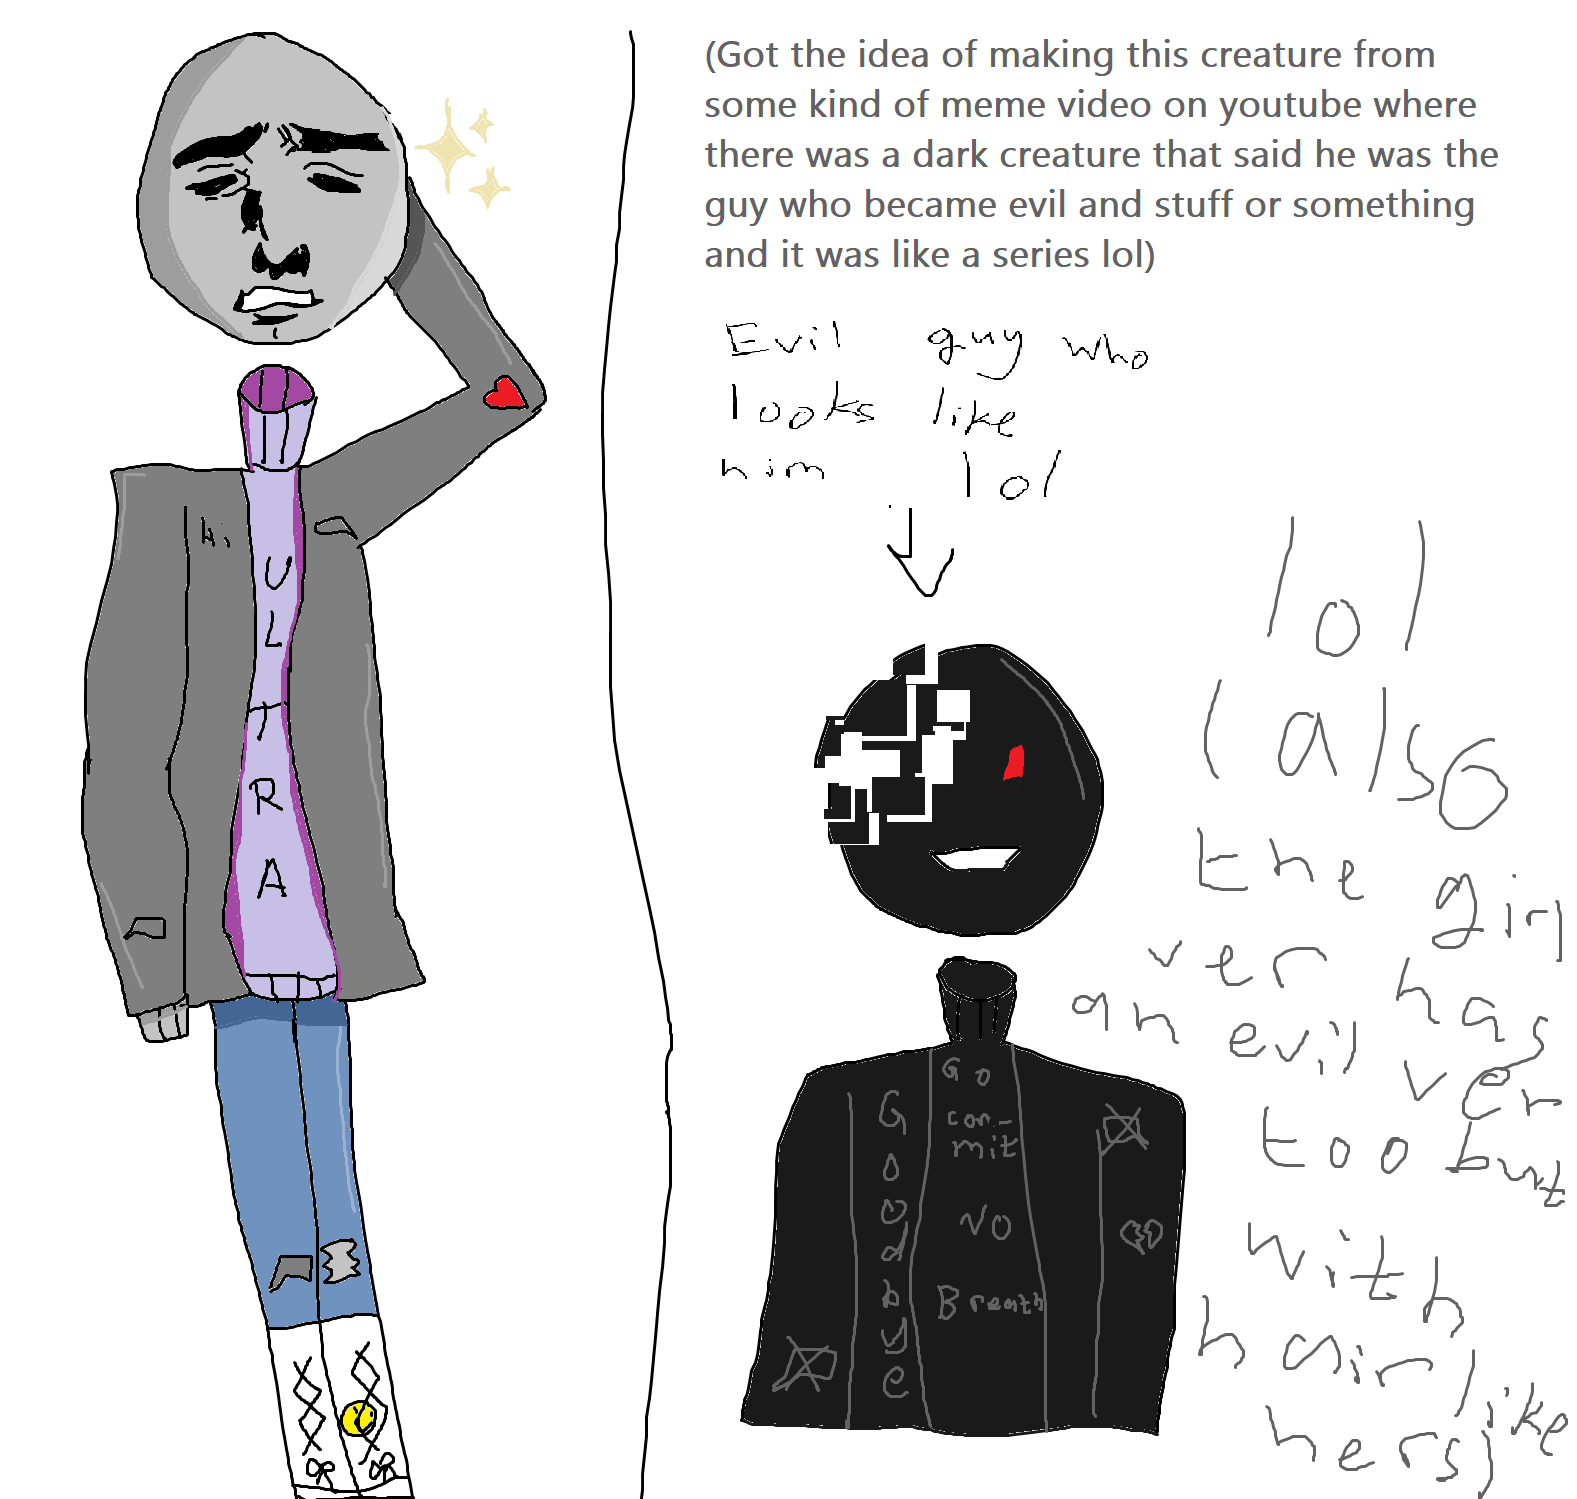 (Got the idea of making this creature from
some kind of meme video on youtube where
there was a dark creature that said he was the
guy who became evil and stuff or something
and it was like a series lol)
Evil guy who
looks like
him lol
Hi
U
L
T
R
A
lol
(also
the girl
ver has
an evil ver
too but
with
hair like
hers)
Goodbye
Go
com-
mit
No
Breath